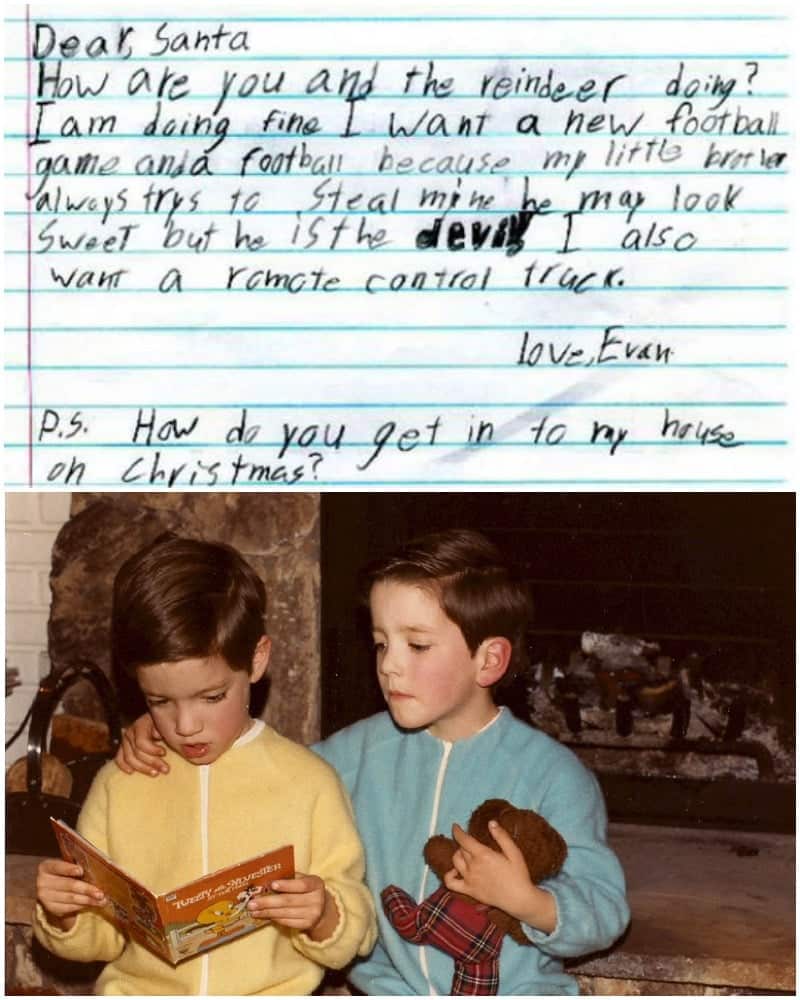 Dear, Santa
How are you and the reindeer doing?
I am doing fine I want a new football
game and a football because my little brother
always trys to steal mine he may look
sweet but he is the devil I also
want a remote control truck.
love, Evan
P.S. How do you get in to my house
on Christmas?
TWEETY and SYLVESTER